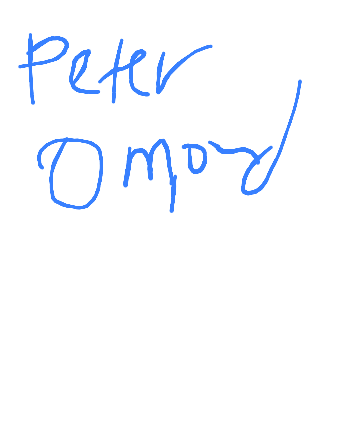 Peter
Omord